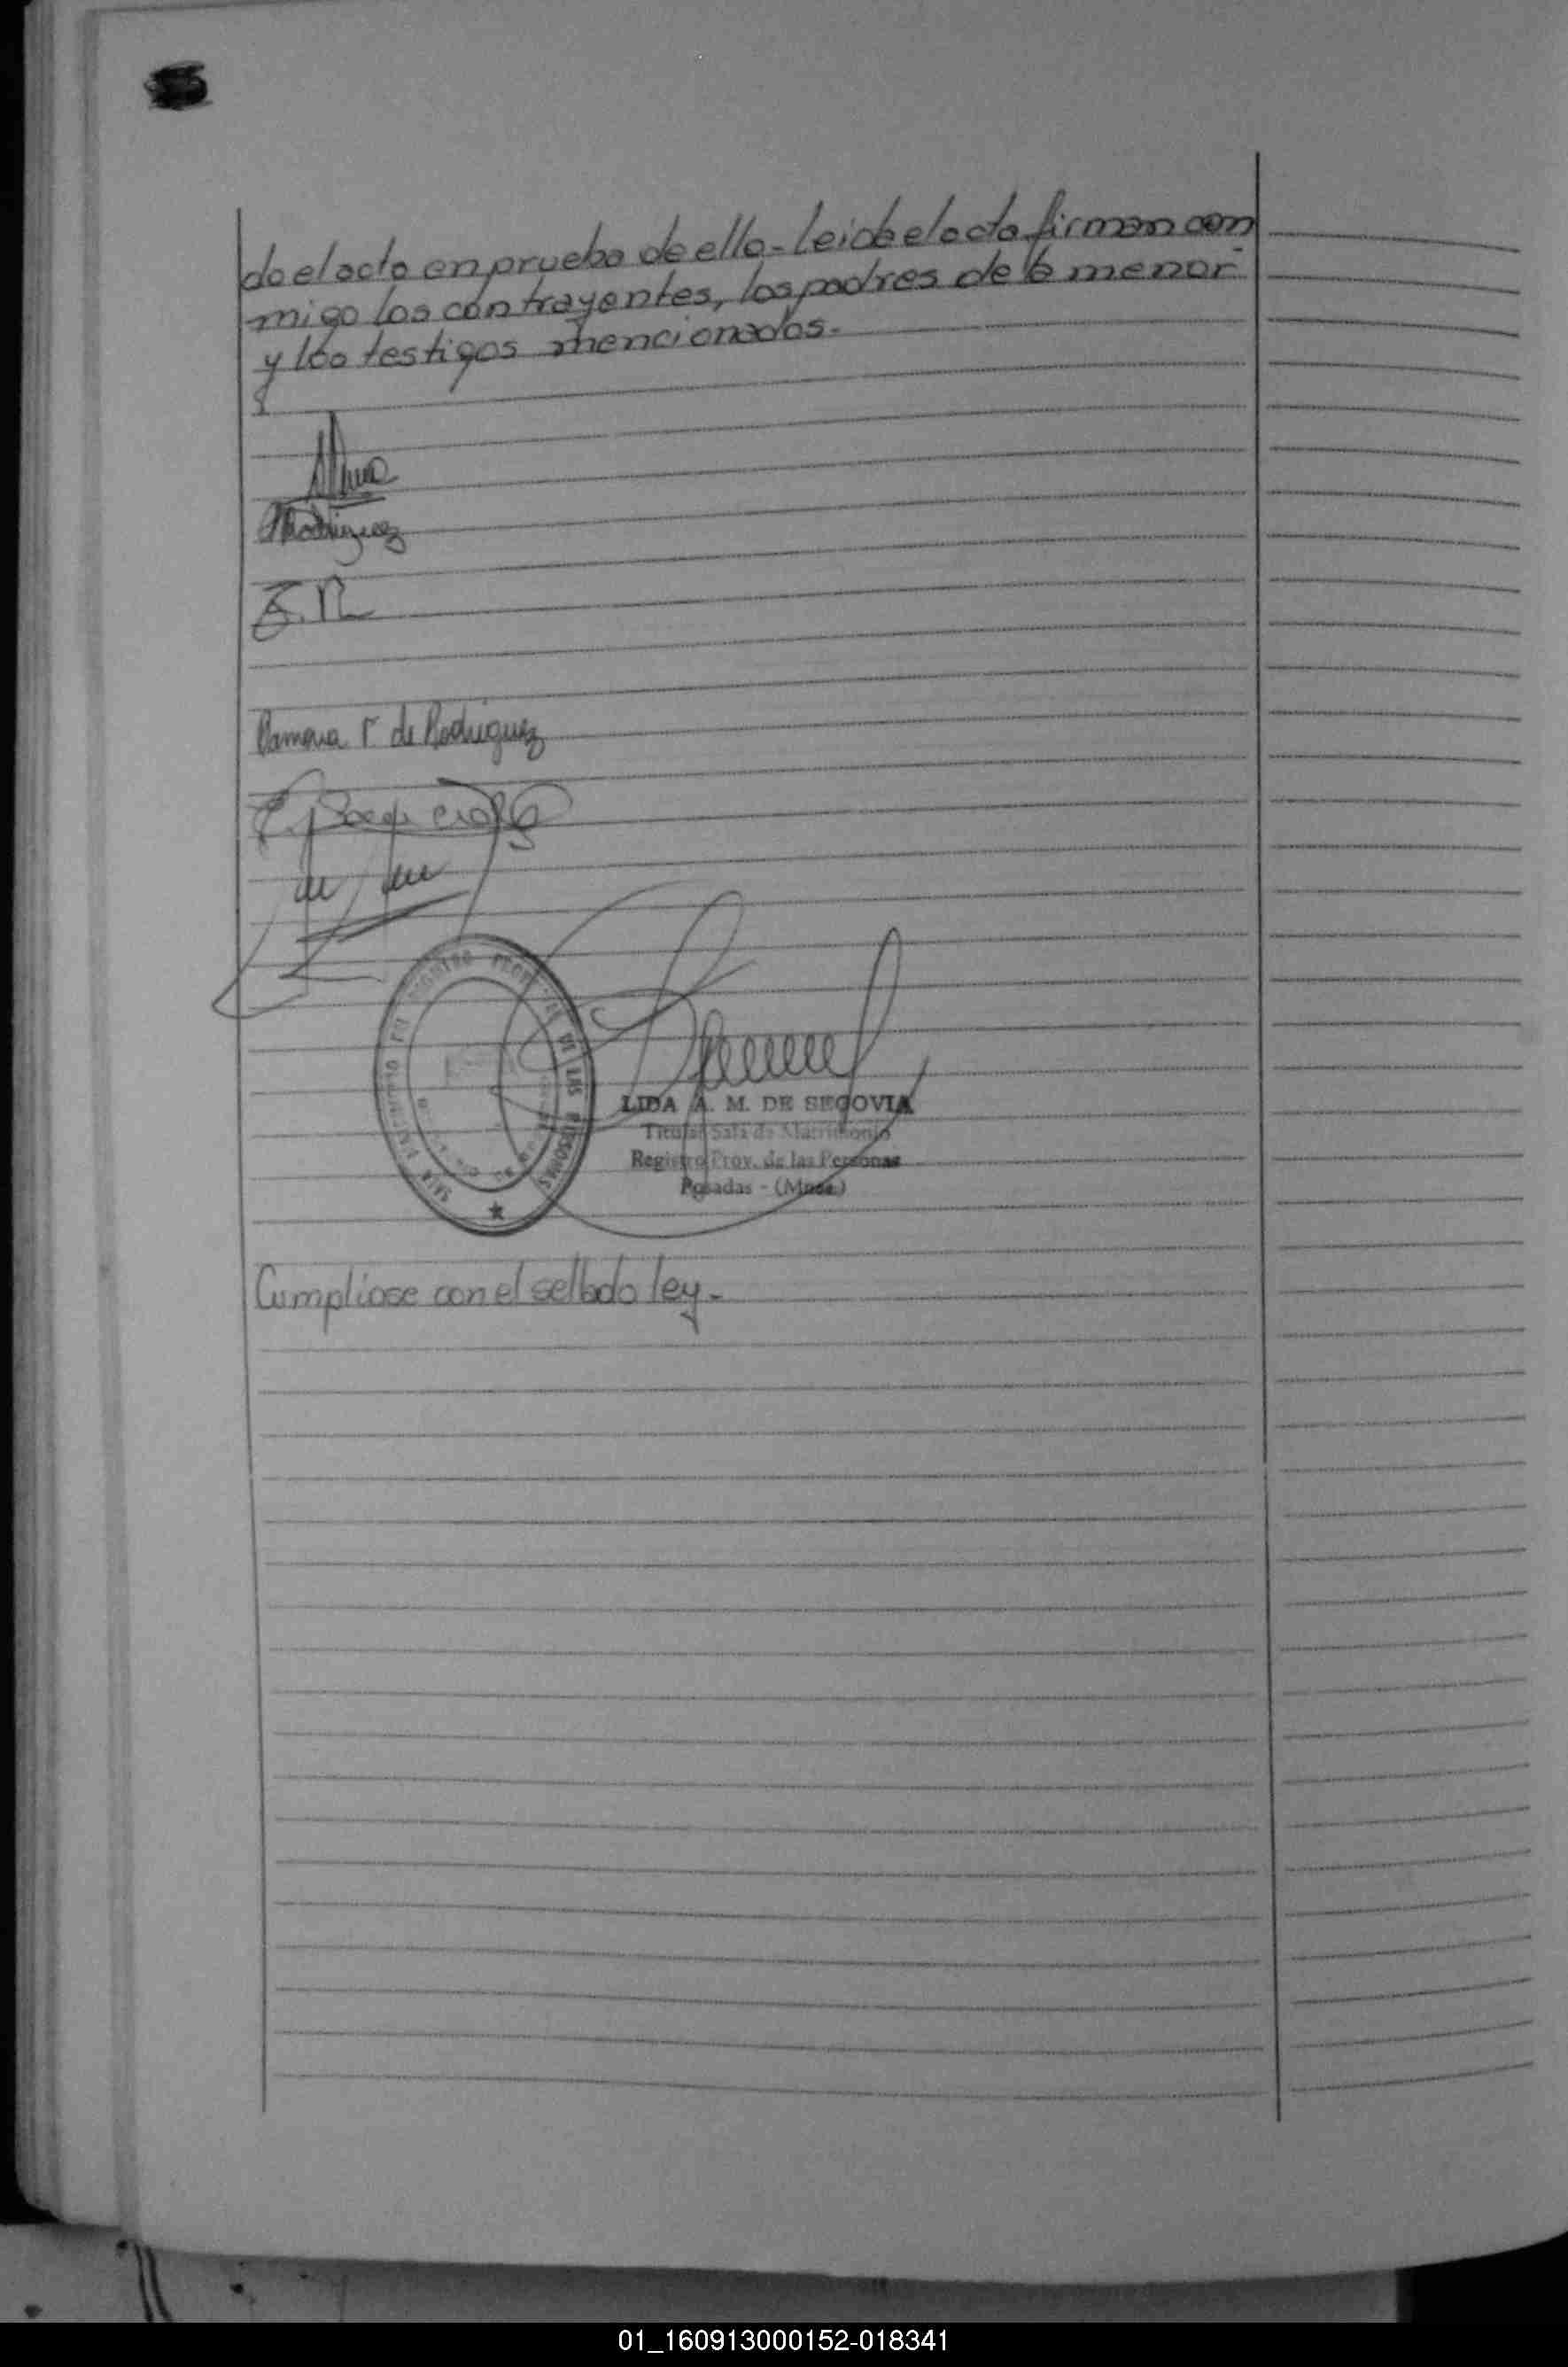 do el acto en prueba de ello - leida el acta firman con
migo los contrayentes, los padres de la menor
y los testigos mencionados.-
Rodriguez
Ramona r. de Rodriguez
LIDA A. M. DE SEGOVIA
Titular Sala de Matrimonio
Registro Prov. de las Personas
Posadas - (Mnes.)
Cumpliose con el sellado ley.-
01_160913000152-018341